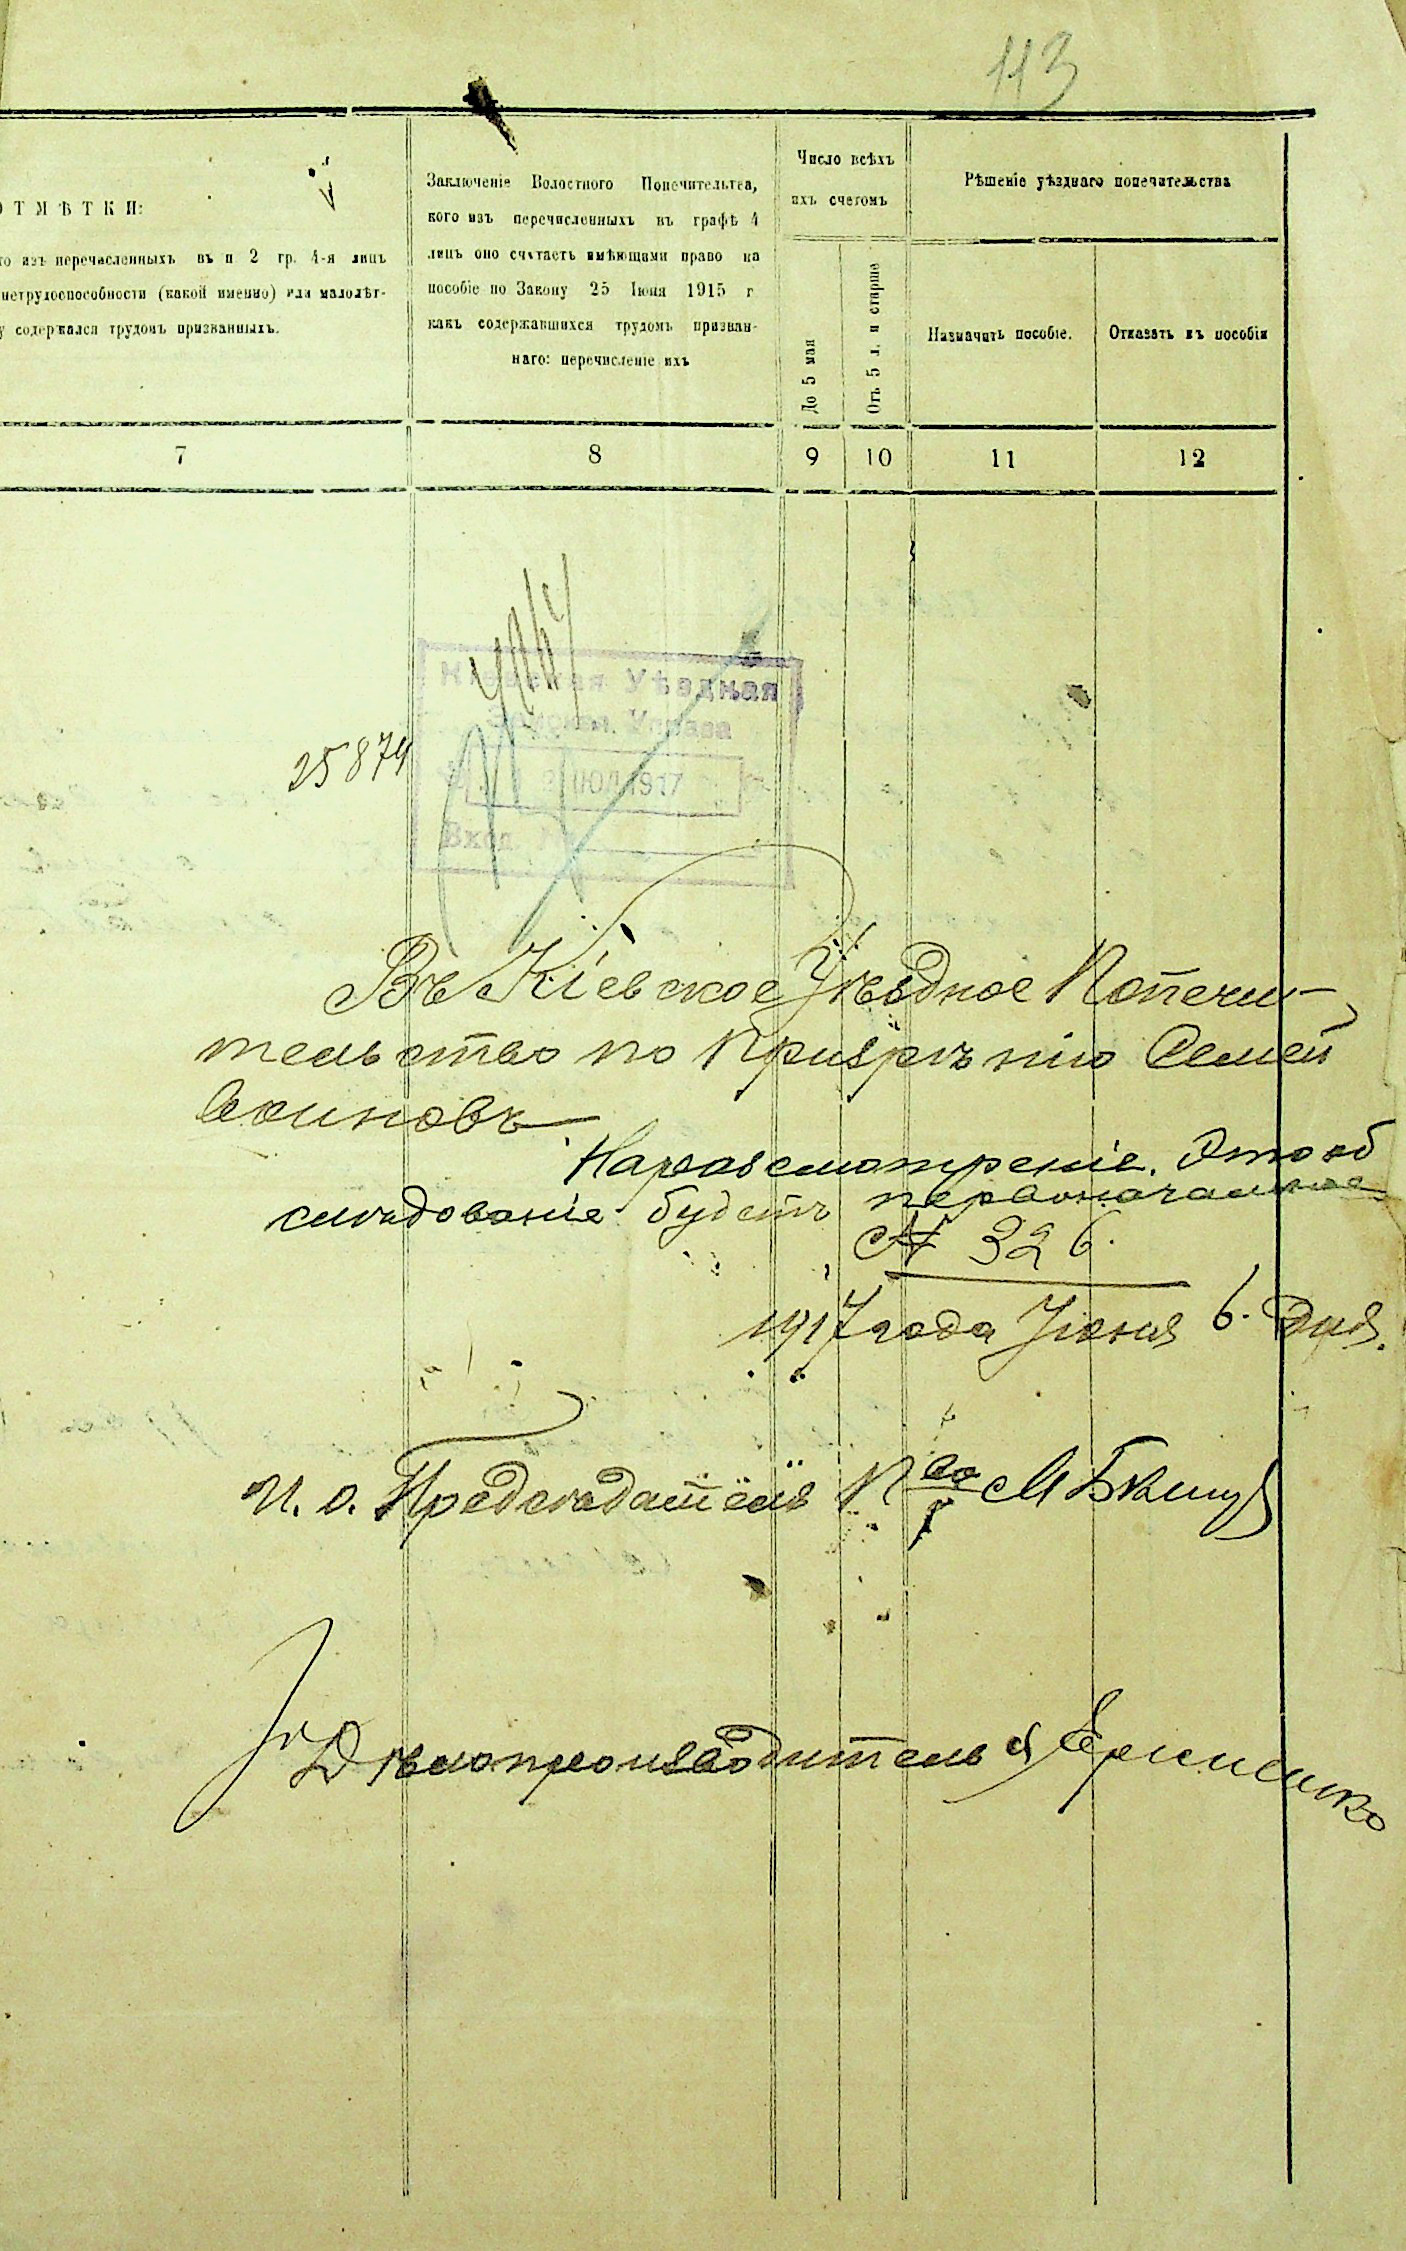 113
ОТМѢТКИ:
изъ перечисленныхъ въ п 2 гр. 4-я лицъ
нетрудоспособности (какой именно) или малолѣт-
у содержался трудомъ призванныхъ.
Заключеніе Волостного Попечительтва,
кого изъ перечисленныхъ въ графѣ 4
лицъ оно считаетъ имѣющими право на
пособіе по Закону 25 Іюня 1915 г
какъ содержавшихся трудомъ призван-
наго: перечисленіе ихъ
Число всѣхъ
ихъ счетомъ
До 5 мая
Отъ 5 л. и старше
Рѣшеніе уѣзднаго попечательства
Назначить пособіе.
Отказать въ пособіи
7 8 9 10 11 12
Кіевская Уѣздная
Земская Управа
ІЮЛ 1917
Вход. №
25874
Въ Кіевское Уѣздное Попечи-
тельство по Призрѣнію Семей
Воиновъ
На разсмотреніе. Это об
слѣдованіе будетъ первоначальное
№ 326.
1917 года Іюня 6. дня.
И. о. Предсѣдатель
Дѣлопроизводитель